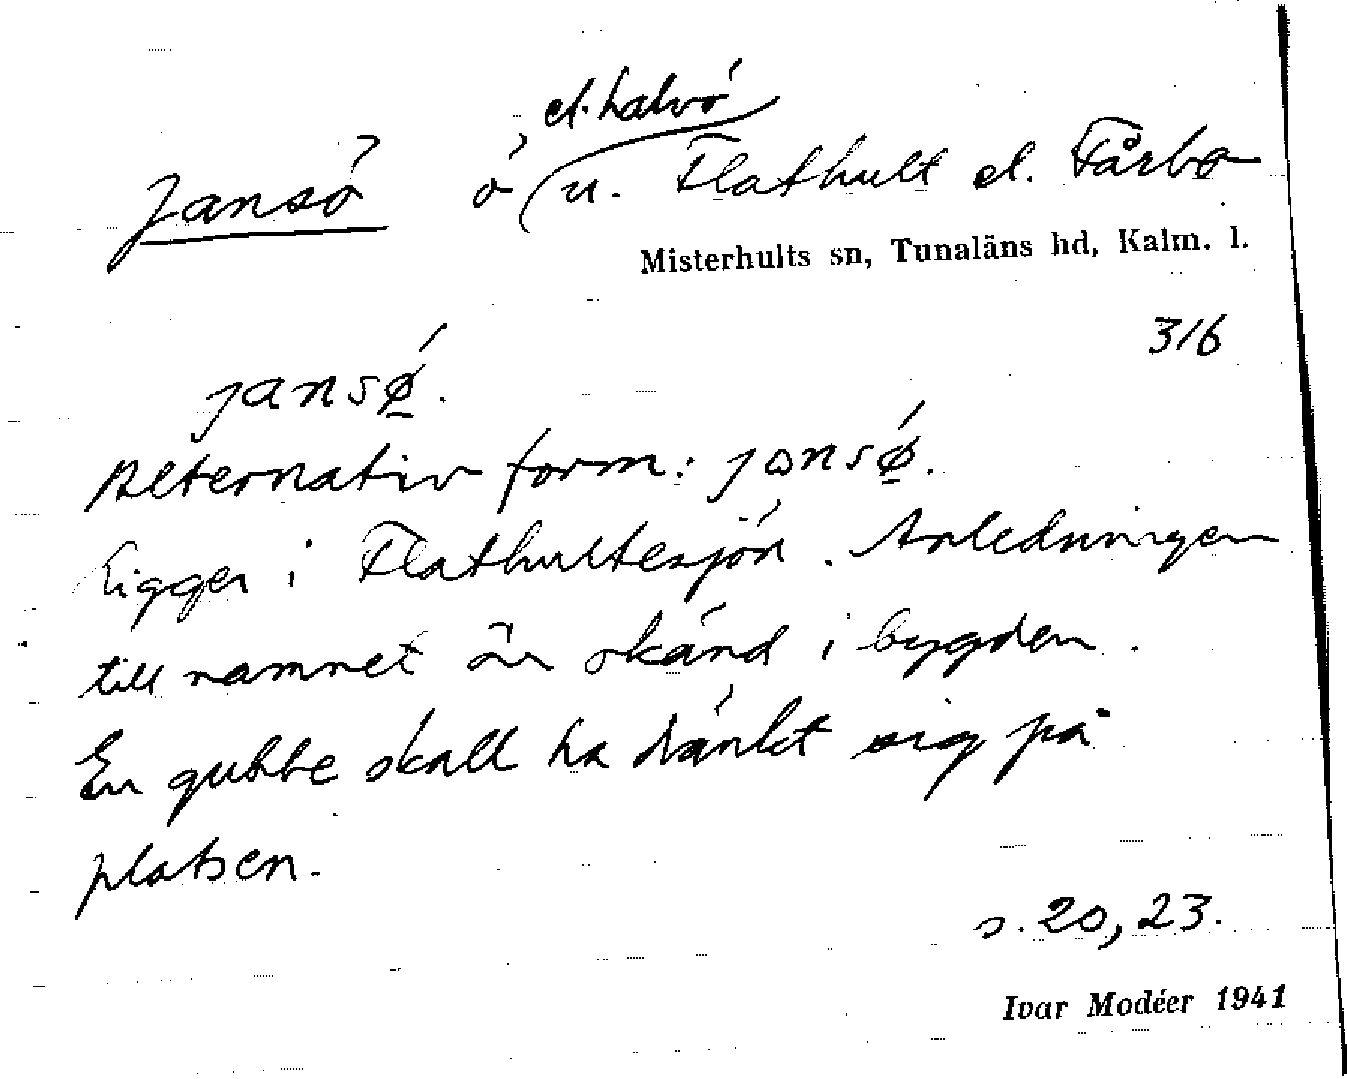 Jansö ö el. halvö u. Flathult el. Fårbo
Misterhults sn, Tunaläns hd, Kalm. l.
316
jansǿ̲.
Alternativ form: jɷnsǿ̲.
Ligger i Flathultesjön. Anledningen
till namnet är okänd i bygden.
En gubbe skall ha dränkt sig på
platsen.
s. 20, 23.
Ivar Modéer 1941